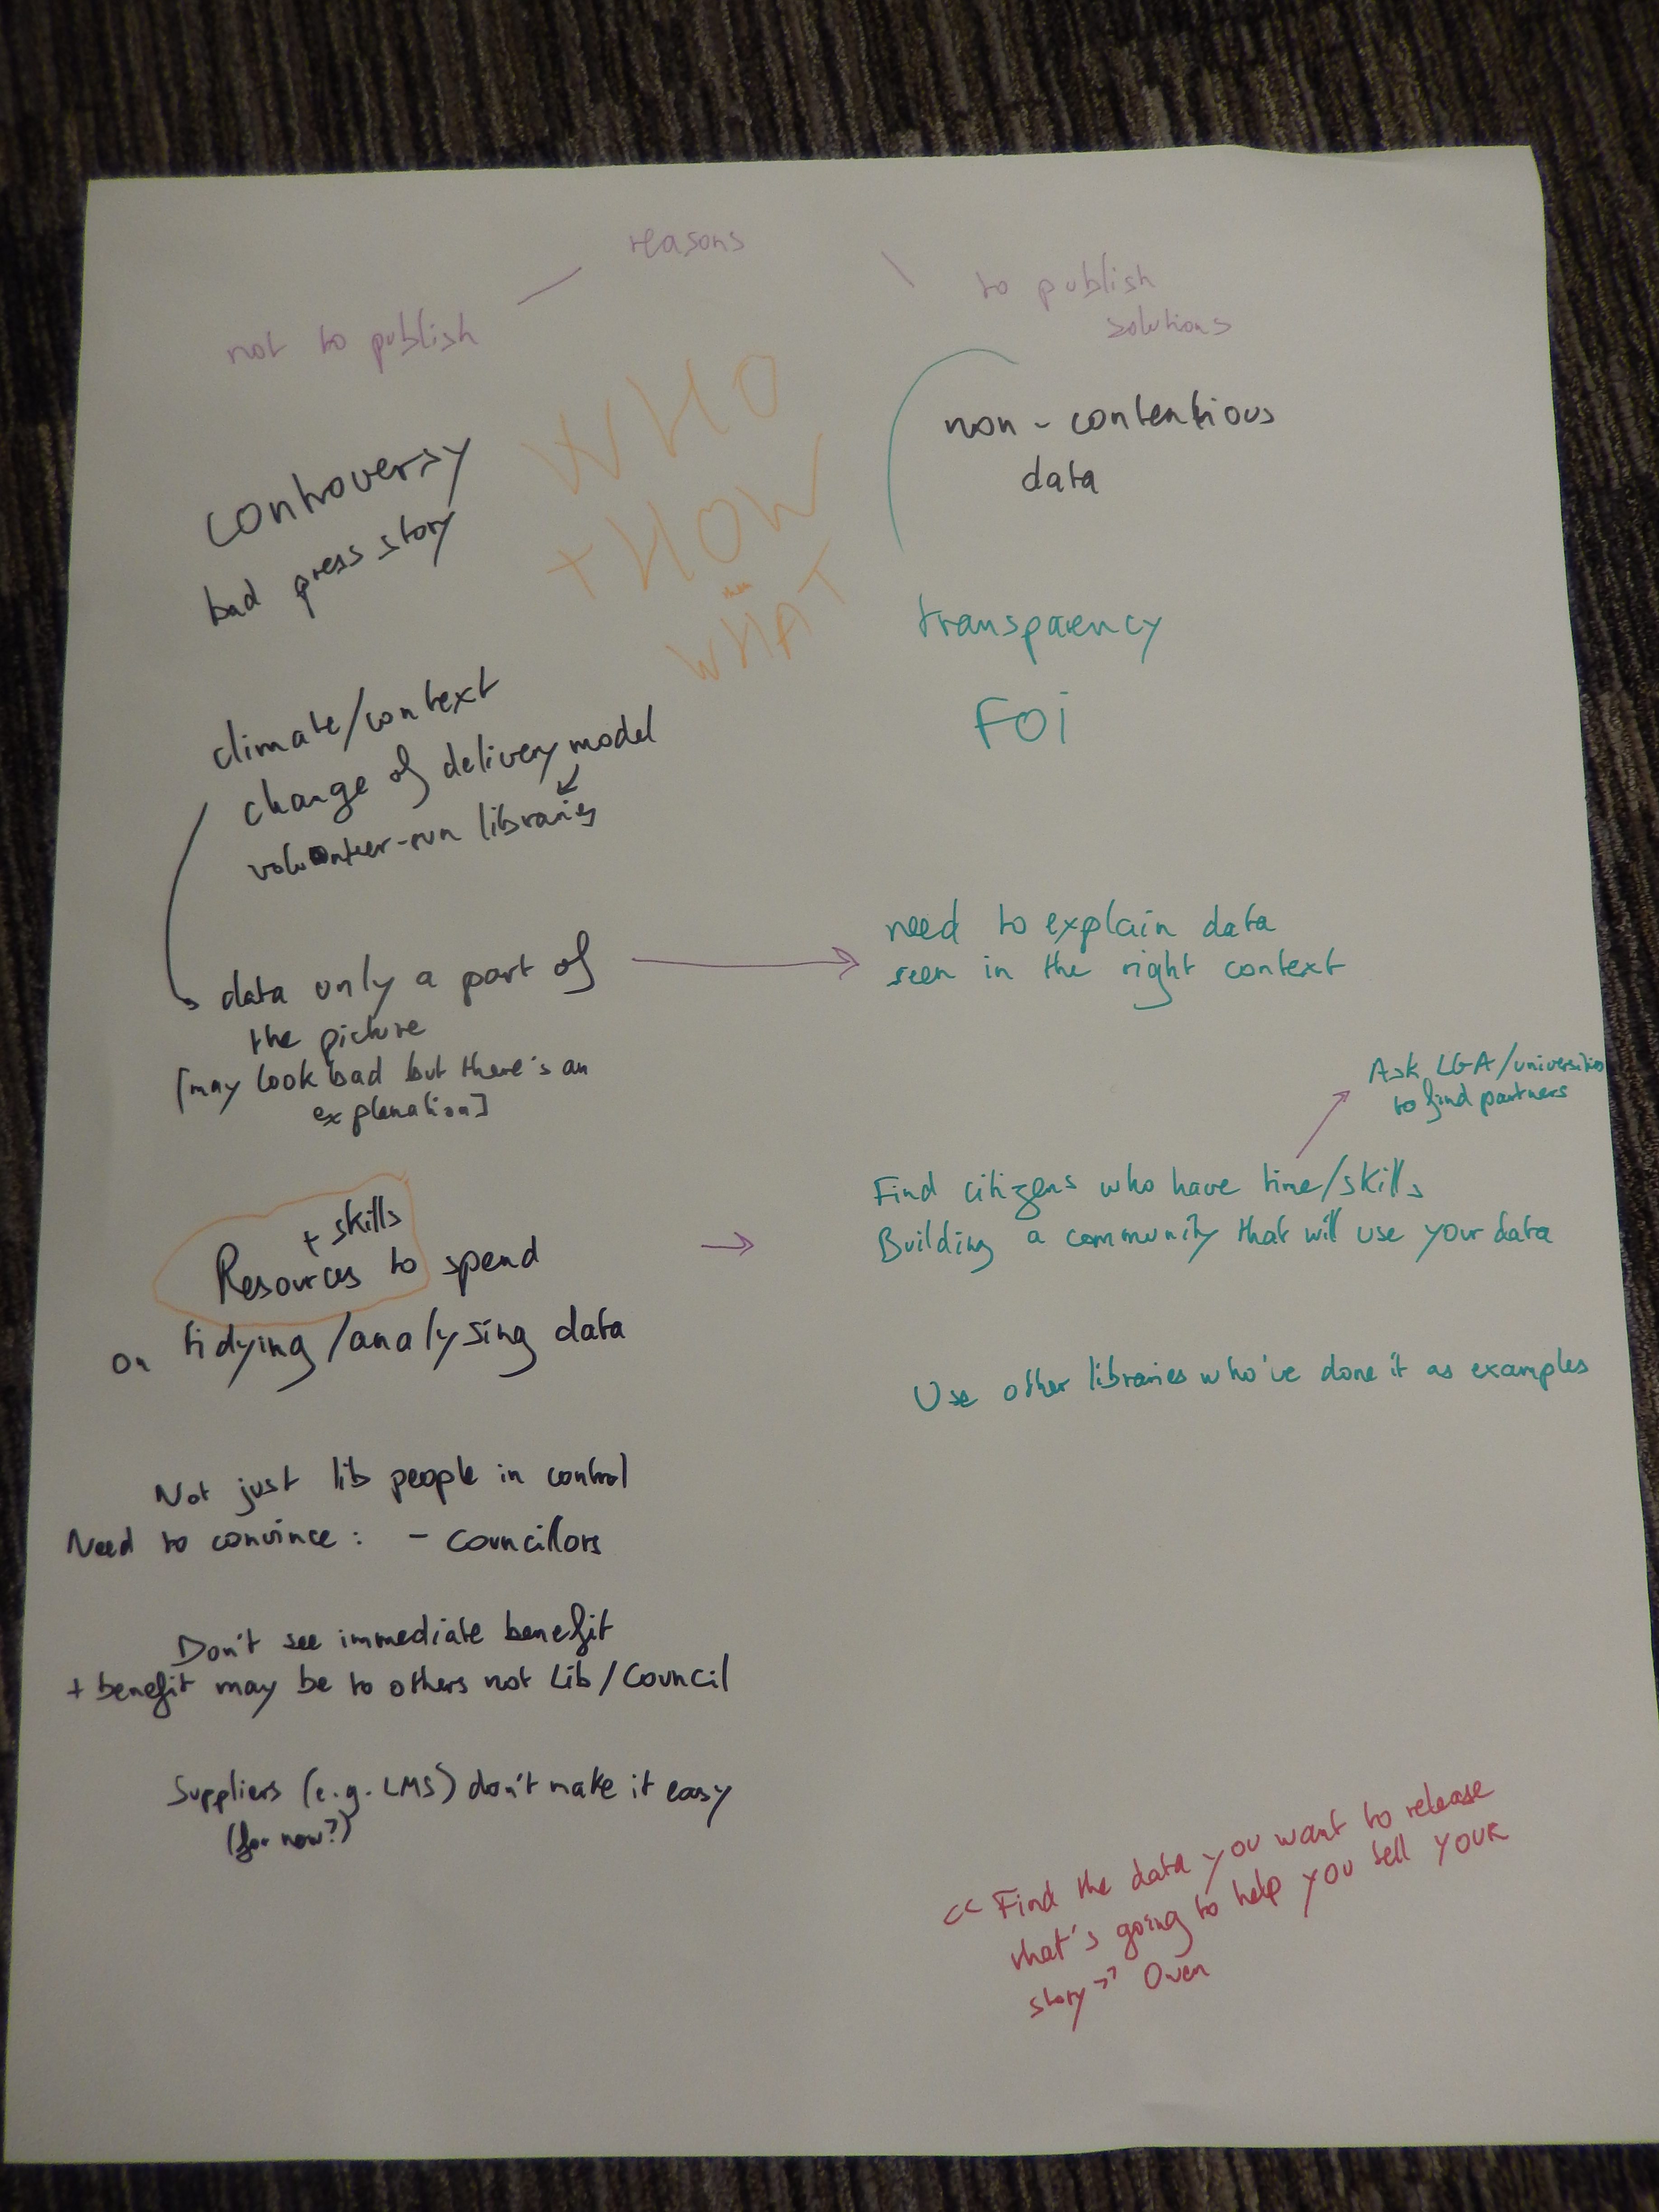 reasons
not to publish
to publish
solutions
WHO
+ HOW
then
WHAT
controversy
bad press story
climate/context
change of delivery model
volunteer-run libraries
data only a part of
the picture
[may look bad but there's an
explanation]
+ skills
Resources to spend
on tidying/analysing data
Not just lib people in control
Need to convince: - Councillors
Don't see immediate benefit
+ benefit may be to others not Lib/Council
Suppliers (e.g. LMS) don't make it easy
(for now?)
non-contentious
data
transparency
FOi
need to explain data
seen in the right context
Ask LGA/universities
to find partners
Find citizens who have time/skills
Building a community that will use your data
Use other libraries who've done it as examples
<< Find the data you want to release
that's going to help you tell YOUR
story >> Owen